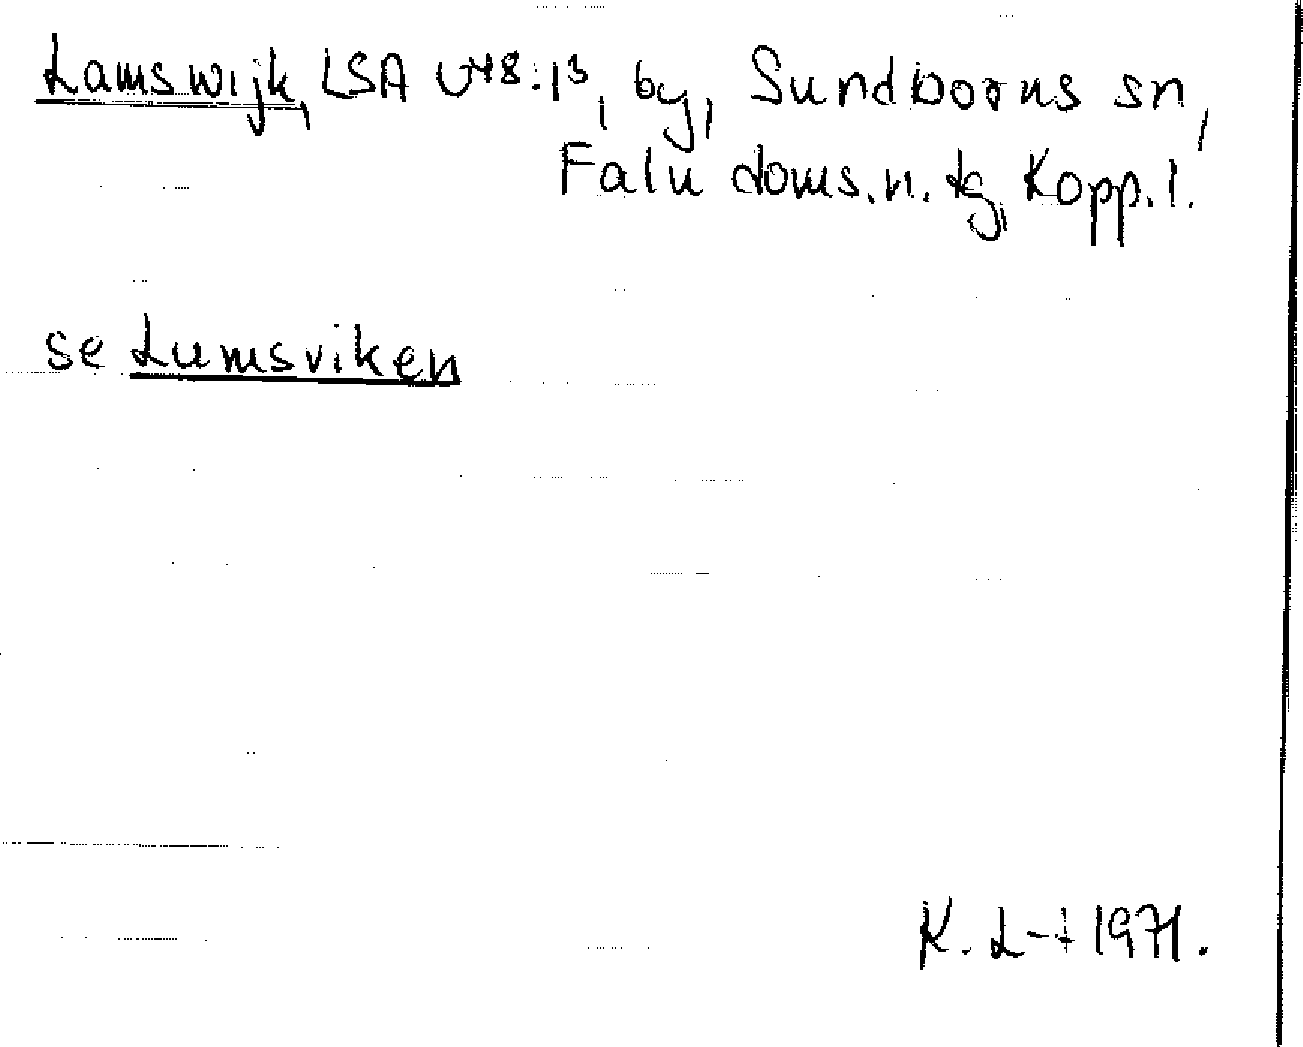 Lamswijk, LSA U48:13, by, Sundborns sn,
Falu doms.n. tg, Kopp.l.
se Lumsviken
K. L-t 1971.